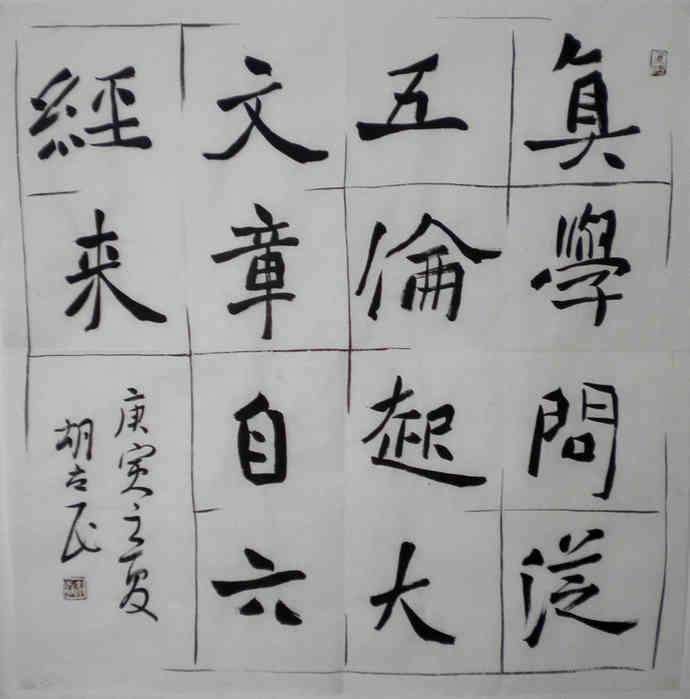 真學問從
五倫起大
文章自六
經来
庚寅之夏
胡古民